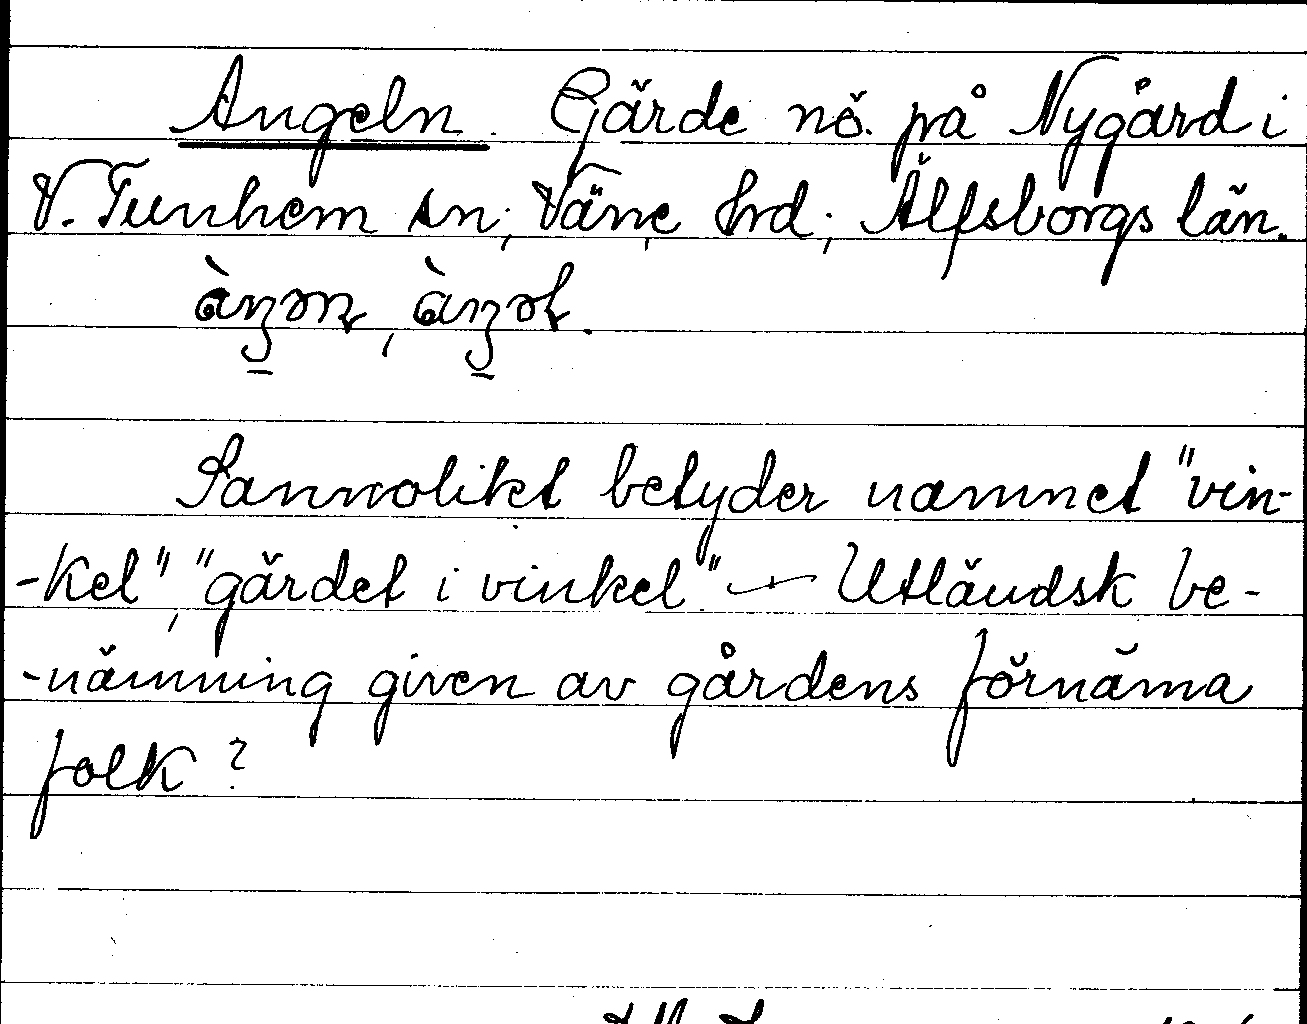 Angeln. Gärde nö. på Nygård i
V. Tunhem sn; Väne hrd; Älfsborgs län.
Sannolikt betyder namnet "vin-
-kel", "gärdet i vinkel". — Utländsk be-
-nämning given av gårdens förnäma
folk?